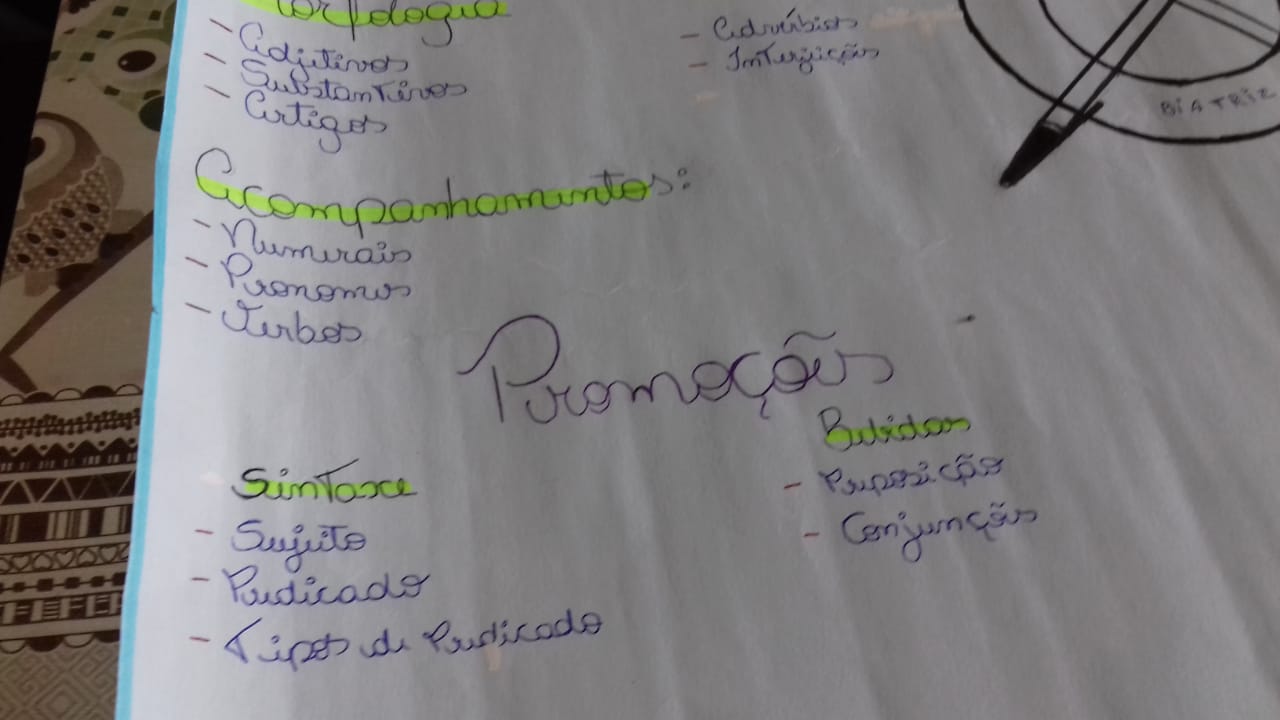 Morfologia
- Adjetivos
- Substantivos
- Artigos
- Advérbios
- Interjeições
BIATRIZ
Acompanhamentos:
- Numerais
- Pronomes
- Verbos
Promoções
Sintaxe
- Sujeito
- Predicado
- Tipos de Predicado
Bebidas
- Preposição
- Conjunções